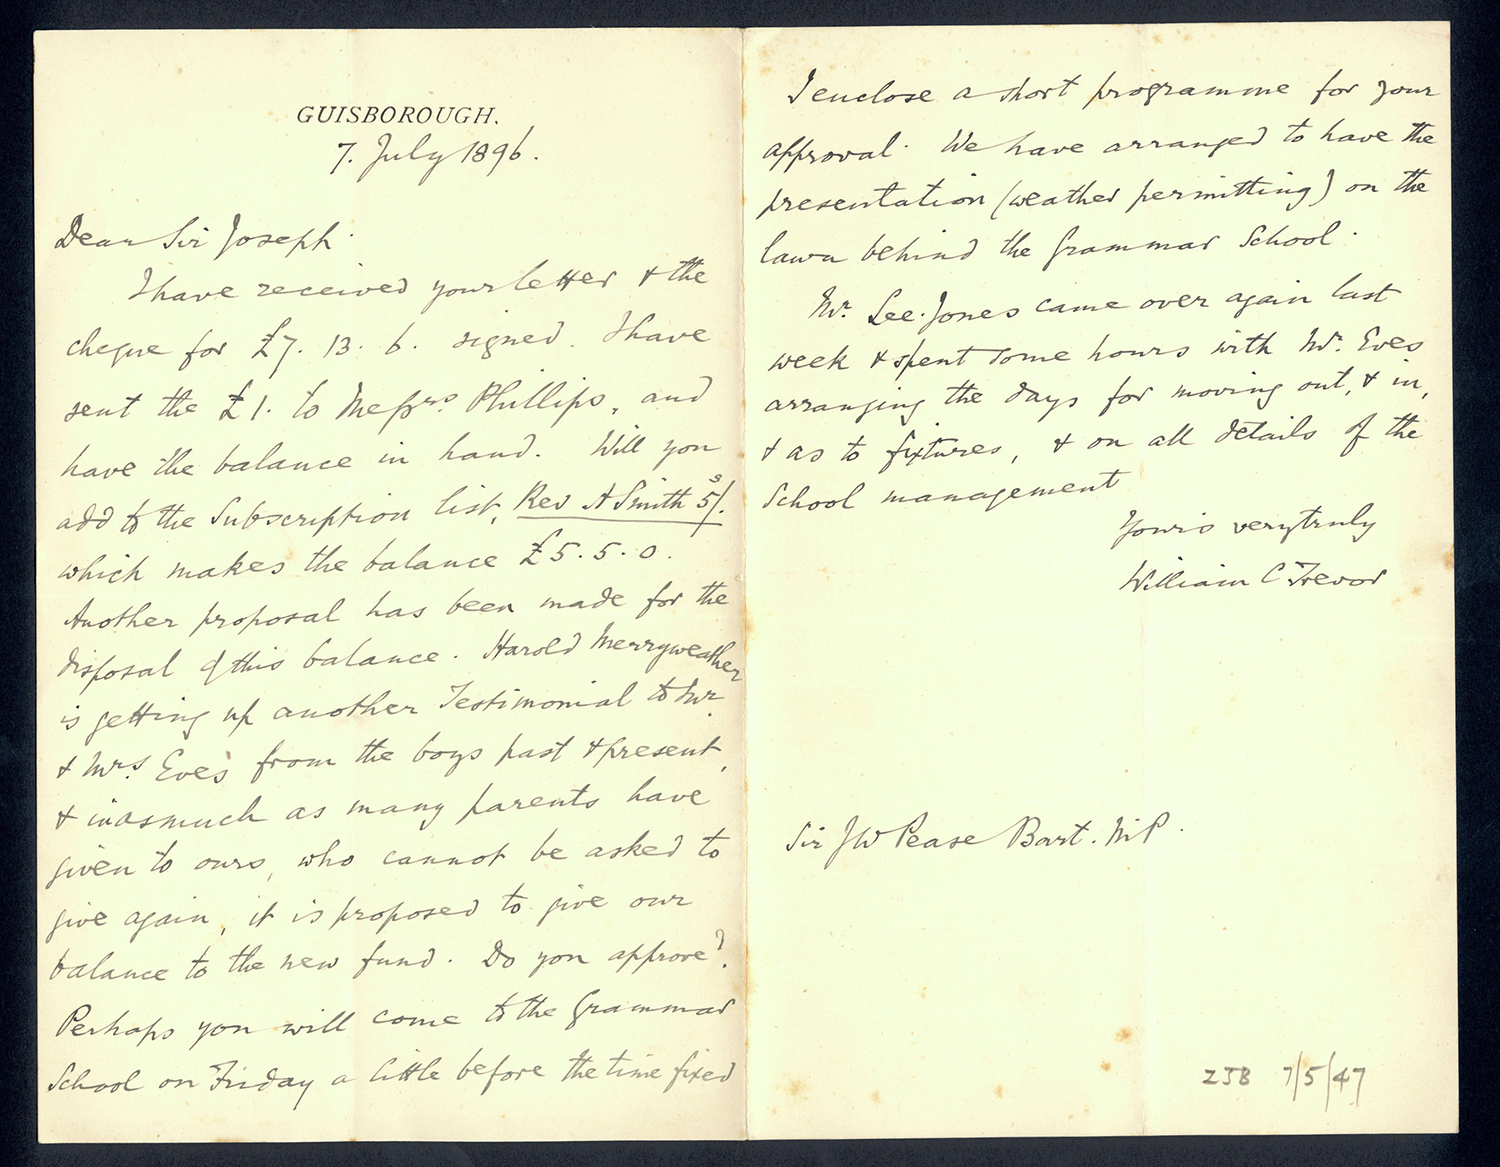 GUISBOROUGH.
7. July 1896.
Dear Sir Joseph.
I have received your letter & the
cheque for £7. 13. 6. signed. I have
sent the £1. to Messrs. Phillips, and
have the balance in hand. Will you
add to the Subscription list, Rev A Smith 5s/.
which makes the balance £5. 5. 0.
Another proposal has been made for the
disposal of this balance. Harold Merryweather
is getting up another Testimonial to Mr
& Mrs. Eves from the boys past & present,
& inasmuch as many parents have
given to ours, who cannot be asked to
give again, it is proposed to give our
balance to the new fund. Do you approve?
Perhaps you will come to the Grammar
School on Friday a little before the time fixed
I enclose a short programme for your
approval. We have arranged to have the
presentation (weather permitting) on the
lawn behind the Grammar School.
Mr. Lee. Jones came over again last
week & spent some hours with Mr. Eves
arranging the days for moving out, & in,
& as to fixtures, & on all details of the
School management
Yours very truly
William C Trevor
Sir J W Pease Bart. M P.
ZJB 7/5/47